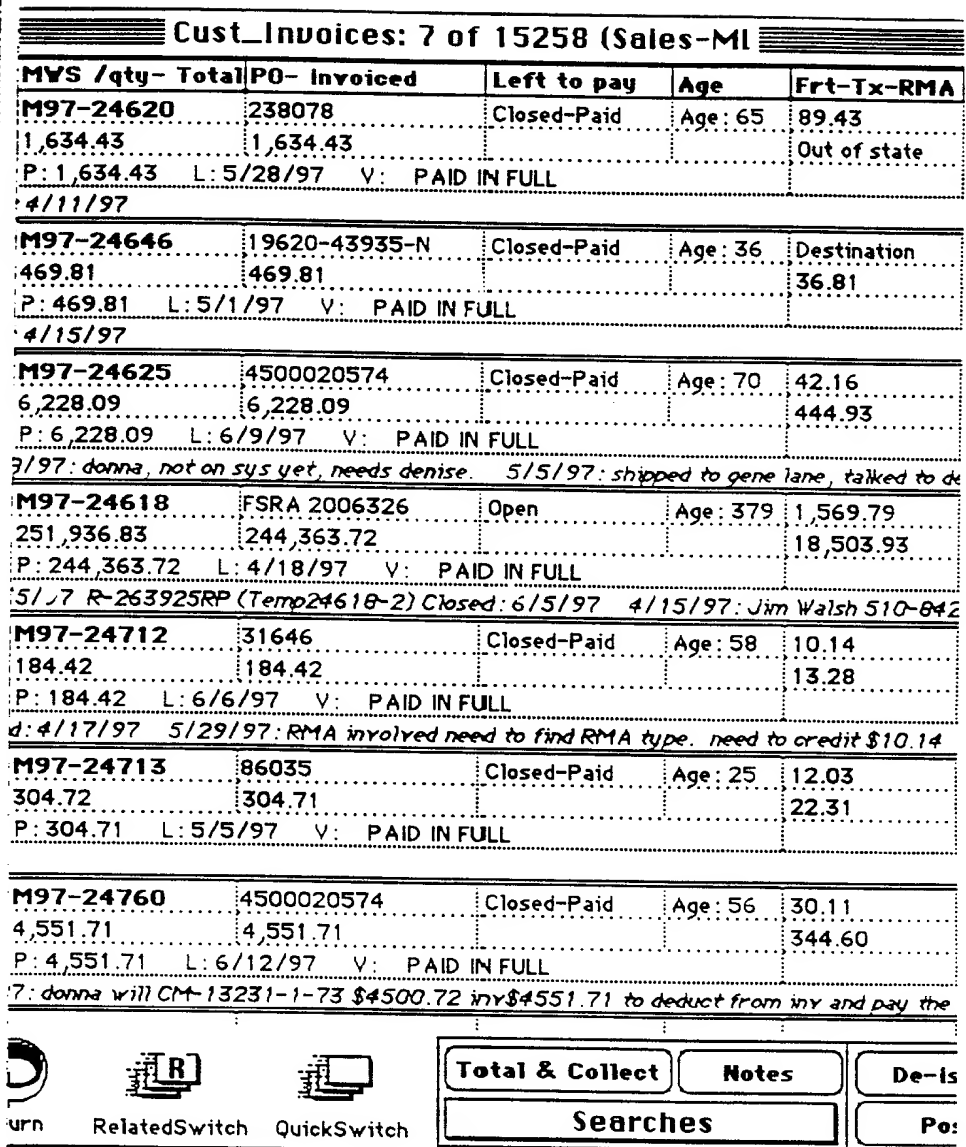 Cust_Invoices: 7 of 15258 (Sales-MI
MWS /qty- Total PO- Invoiced Left to pay Age Frt-Tx-RMA
M97-24620 238078 Closed-Paid Age: 65 89.43
1,634.43 1,634.43 Out of state
P: 1,634.43 L: 5/28/97 V: PAID IN FULL
4/11/97
M97-24646 19620-43935-N Closed-Paid Age: 36 Destination
469.81 469.81 36.81
P: 469.81 L: 5/1/97 V: PAID IN FULL
4/15/97
M97-24625 4500020574 Closed-Paid Age: 70 42.16
6,228.09 6,228.09 444.93
P: 6,228.09 L: 6/9/97 V: PAID IN FULL
/97: donna, not on sys yet, needs denise. 5/5/97: shipped to gene lane, talked to de
M97-24618 FSRA 2006326 Open Age: 379 1,569.79
251,936.83 244,363.72 18,503.93
P: 244,363.72 L: 4/18/97 V: PAID IN FULL
R-263925RP (Temp24618-2) Closed: 6/5/97 4/15/97: Jim Walsh 510-842
M97-24712 31646 Closed-Paid Age: 58 10.14
184.42 184.42 13.28
P: 184.42 L: 6/6/97 V: PAID IN FULL
d: 4/17/97 5/29/97: RMA involved need to find RMA type. need to credit $10.14
M97-24713 86035 Closed-Paid Age: 25 12.03
304.72 304.71 22.31
P: 304.71 L: 5/5/97 V: PAID IN FULL
M97-24760 4500020574 Closed-Paid Age: 56 30.11
4,551.71 4,551.71 344.60
P: 4,551.71 L: 6/12/97 V: PAID IN FULL
7: donna will CM-13231-1-73 $4500.72 inv$4551.71 to deduct from inv and pay the
Total & Collect Notes De-is
R
urn RelatedSwitch QuickSwitch Searches Pos